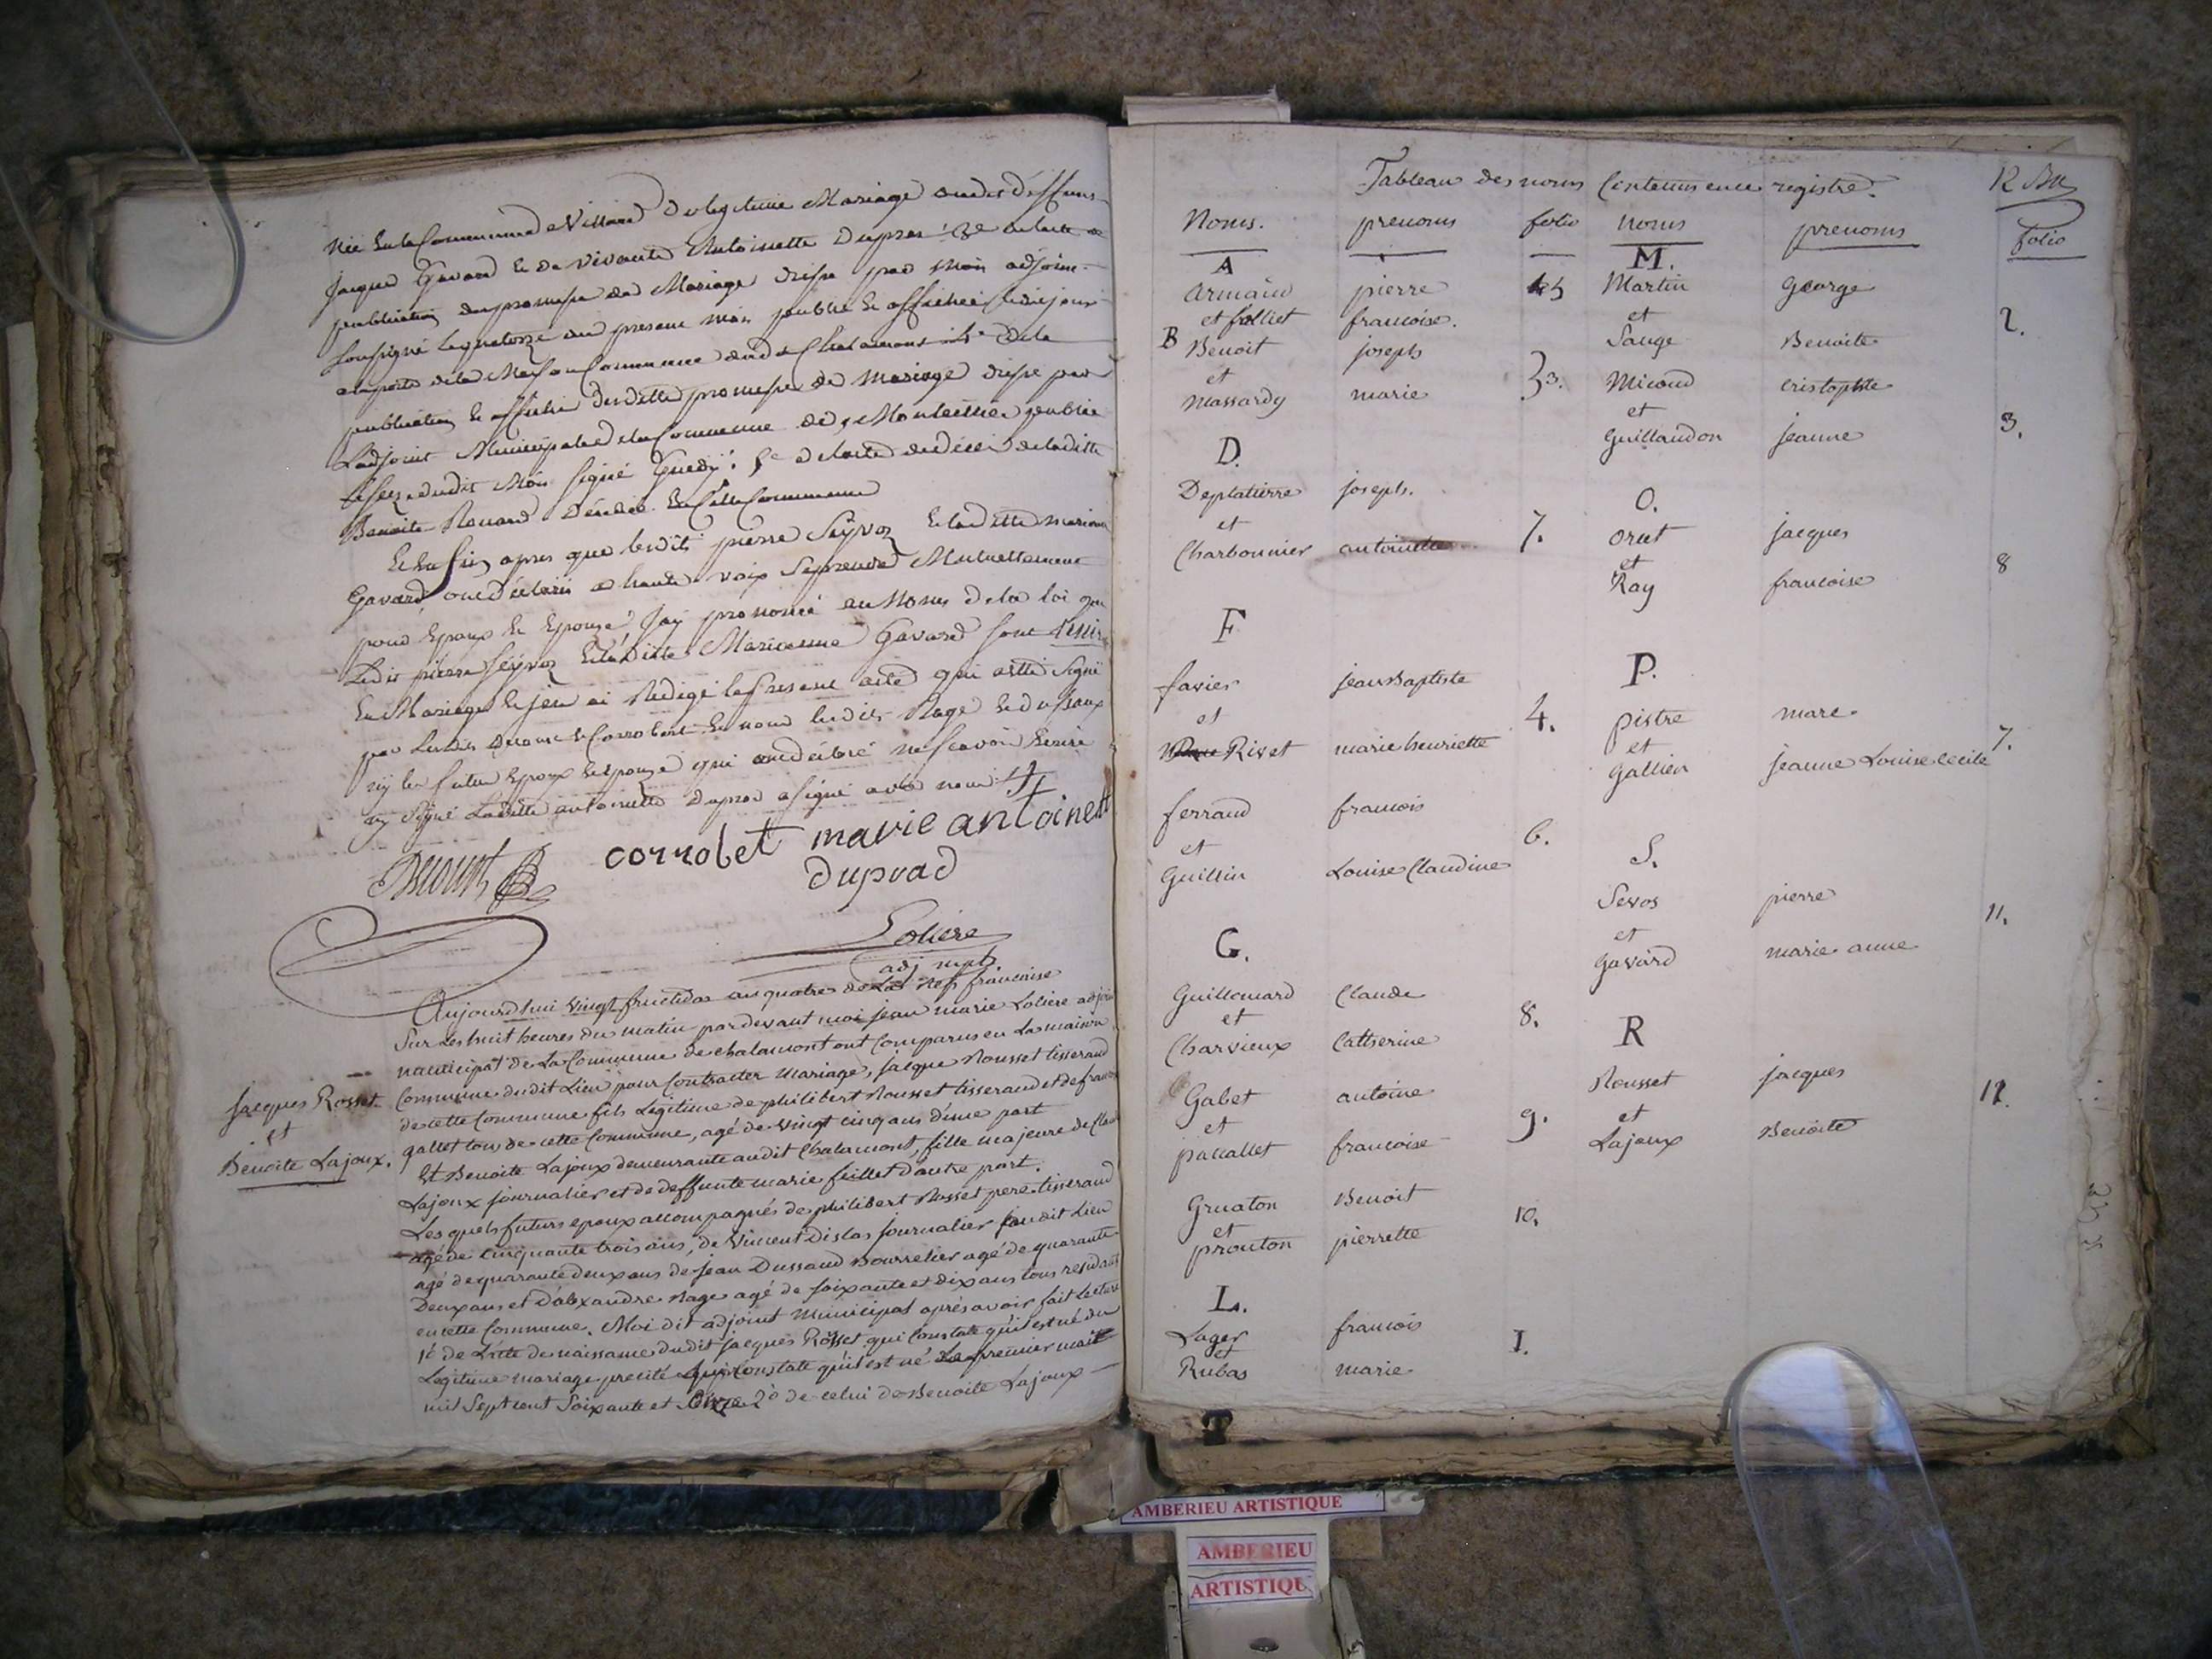 née en la Commune de Villard de legitime Mariage dudit deffunt
Jacque Gavard et de vivante Antoinette Duprad 3e de lacte de
publication de promesse de Mariage dressé par mon adjoint
soussigné le quatorze du present mois publié et affiché ledit jour
a la porte de la Maison Commune dudit Chalamont 4e de la
publication et affiche de ladite promesse de mariage dressé par
Ladjoint Municipal de la Commune de Montellier publié
le seize dudit Mois signé 5e de lacte de décès de ladite
Benoite Rouard décédée en Cette Commune
Et en fin apres que ledit pierre Seyvoz et ladite marianne
Gavard ont déclaré a haute voix se prendre Mutuellement
pour Epoux et Epouse Jay prononcé au Nom de la loi que
Ledit pierre Seyvoz et ladite Marianne Gavard sont unis
En Mariage et jen ai Redigé le present acte qui a été signé
par Lesdits Decourt et Corrobert et non lesdits Nage et dussaux
ny les futur Epoux et Epouse qui ont déclaré ne scavoir Ecrire
ny signé Ladite antoinette Duprad a signé avec nous
Decourt corrobet marie antoinett
duprad
Loliere
adj mpl
Aujourdhui vingt fructidor an quatre de La Rep francaise
Sur Les huit heures du matin par devant moi jean marie Loliere adjoint
municipal de La Commune de chalamont ont Comparus en La maison
Jacques Rosset
et
Benoite Lajoux.
Commune dudit Lieu pour Contracter mariage, jacque Rousset tisserand
de cette Commune fils Legitime de philibert Rousset tisserand et de francoise
gallet tous de cette Commune, agé de vingt cinq ans dune part
Et Benoite Lajoux demeurante audit Chalamont, fille majeure de
Lajoux journalier et de deffunte marie feillet d'autre part.
Lesquels futurs epoux accompagnés de philibert Rosset pere tisserand
agé de Cinquante trois ans, de Vincent Dislas journalier audit Lieu
agé de quarante deux ans de jean Dussaud Bourrelier agé de quarante
Deux ans et D'alexandre Nage agé de soixante et dix ans tous residants
en cette Commune. Moi dit adjoint Municipal après avoir fait Lecture
1é de L'acte de naissance dudit jacques Rosset qui Constate qu'il est né du
Legitime mariage precité qui Constate qu'il est né Le premier mai
mil Sept cent Soixante et onze 2o de celui de Benoite Lajoux
Tableau des noms Contenus en ce registre.
Noms. prenoms folio noms prenoms folio
A
Armand pierre 5
et folliet francoise.
B Benoit joseph
et
Massardy marie 3.
D.
Deplatierre joseph.
et
Charbonnier antoinette 7.
F
favier jean Baptiste
et
Rivet marie henriette 4.
ferrand francois
et
Guillin Louise Claudine 6.
G.
Guillemard Claude
et
Charvieux Catherine 8.
Gabet antoine
et
pacallet francoise 9.
Gruaton Benoit
et
prouton pierrette 10.
L.
Lager francois
et
Rubas marie 1.
M.
Martin George
et
Sauge Benoite 2.
Micoud cristophle
et
Guillaudon jeanne 3.
O.
Oret jacques
et
Ray francoise 8
P.
pistre marc
et
Gallien jeanne Louise Cecile 7.
S.
Sevos pierre
et
Gavard marie anne 11.
R
Rousset jacques
et
Lajoux Benoite 12.
AMBERIEU ARTISTIQUE
AMBERIEU
ARTISTIQUE